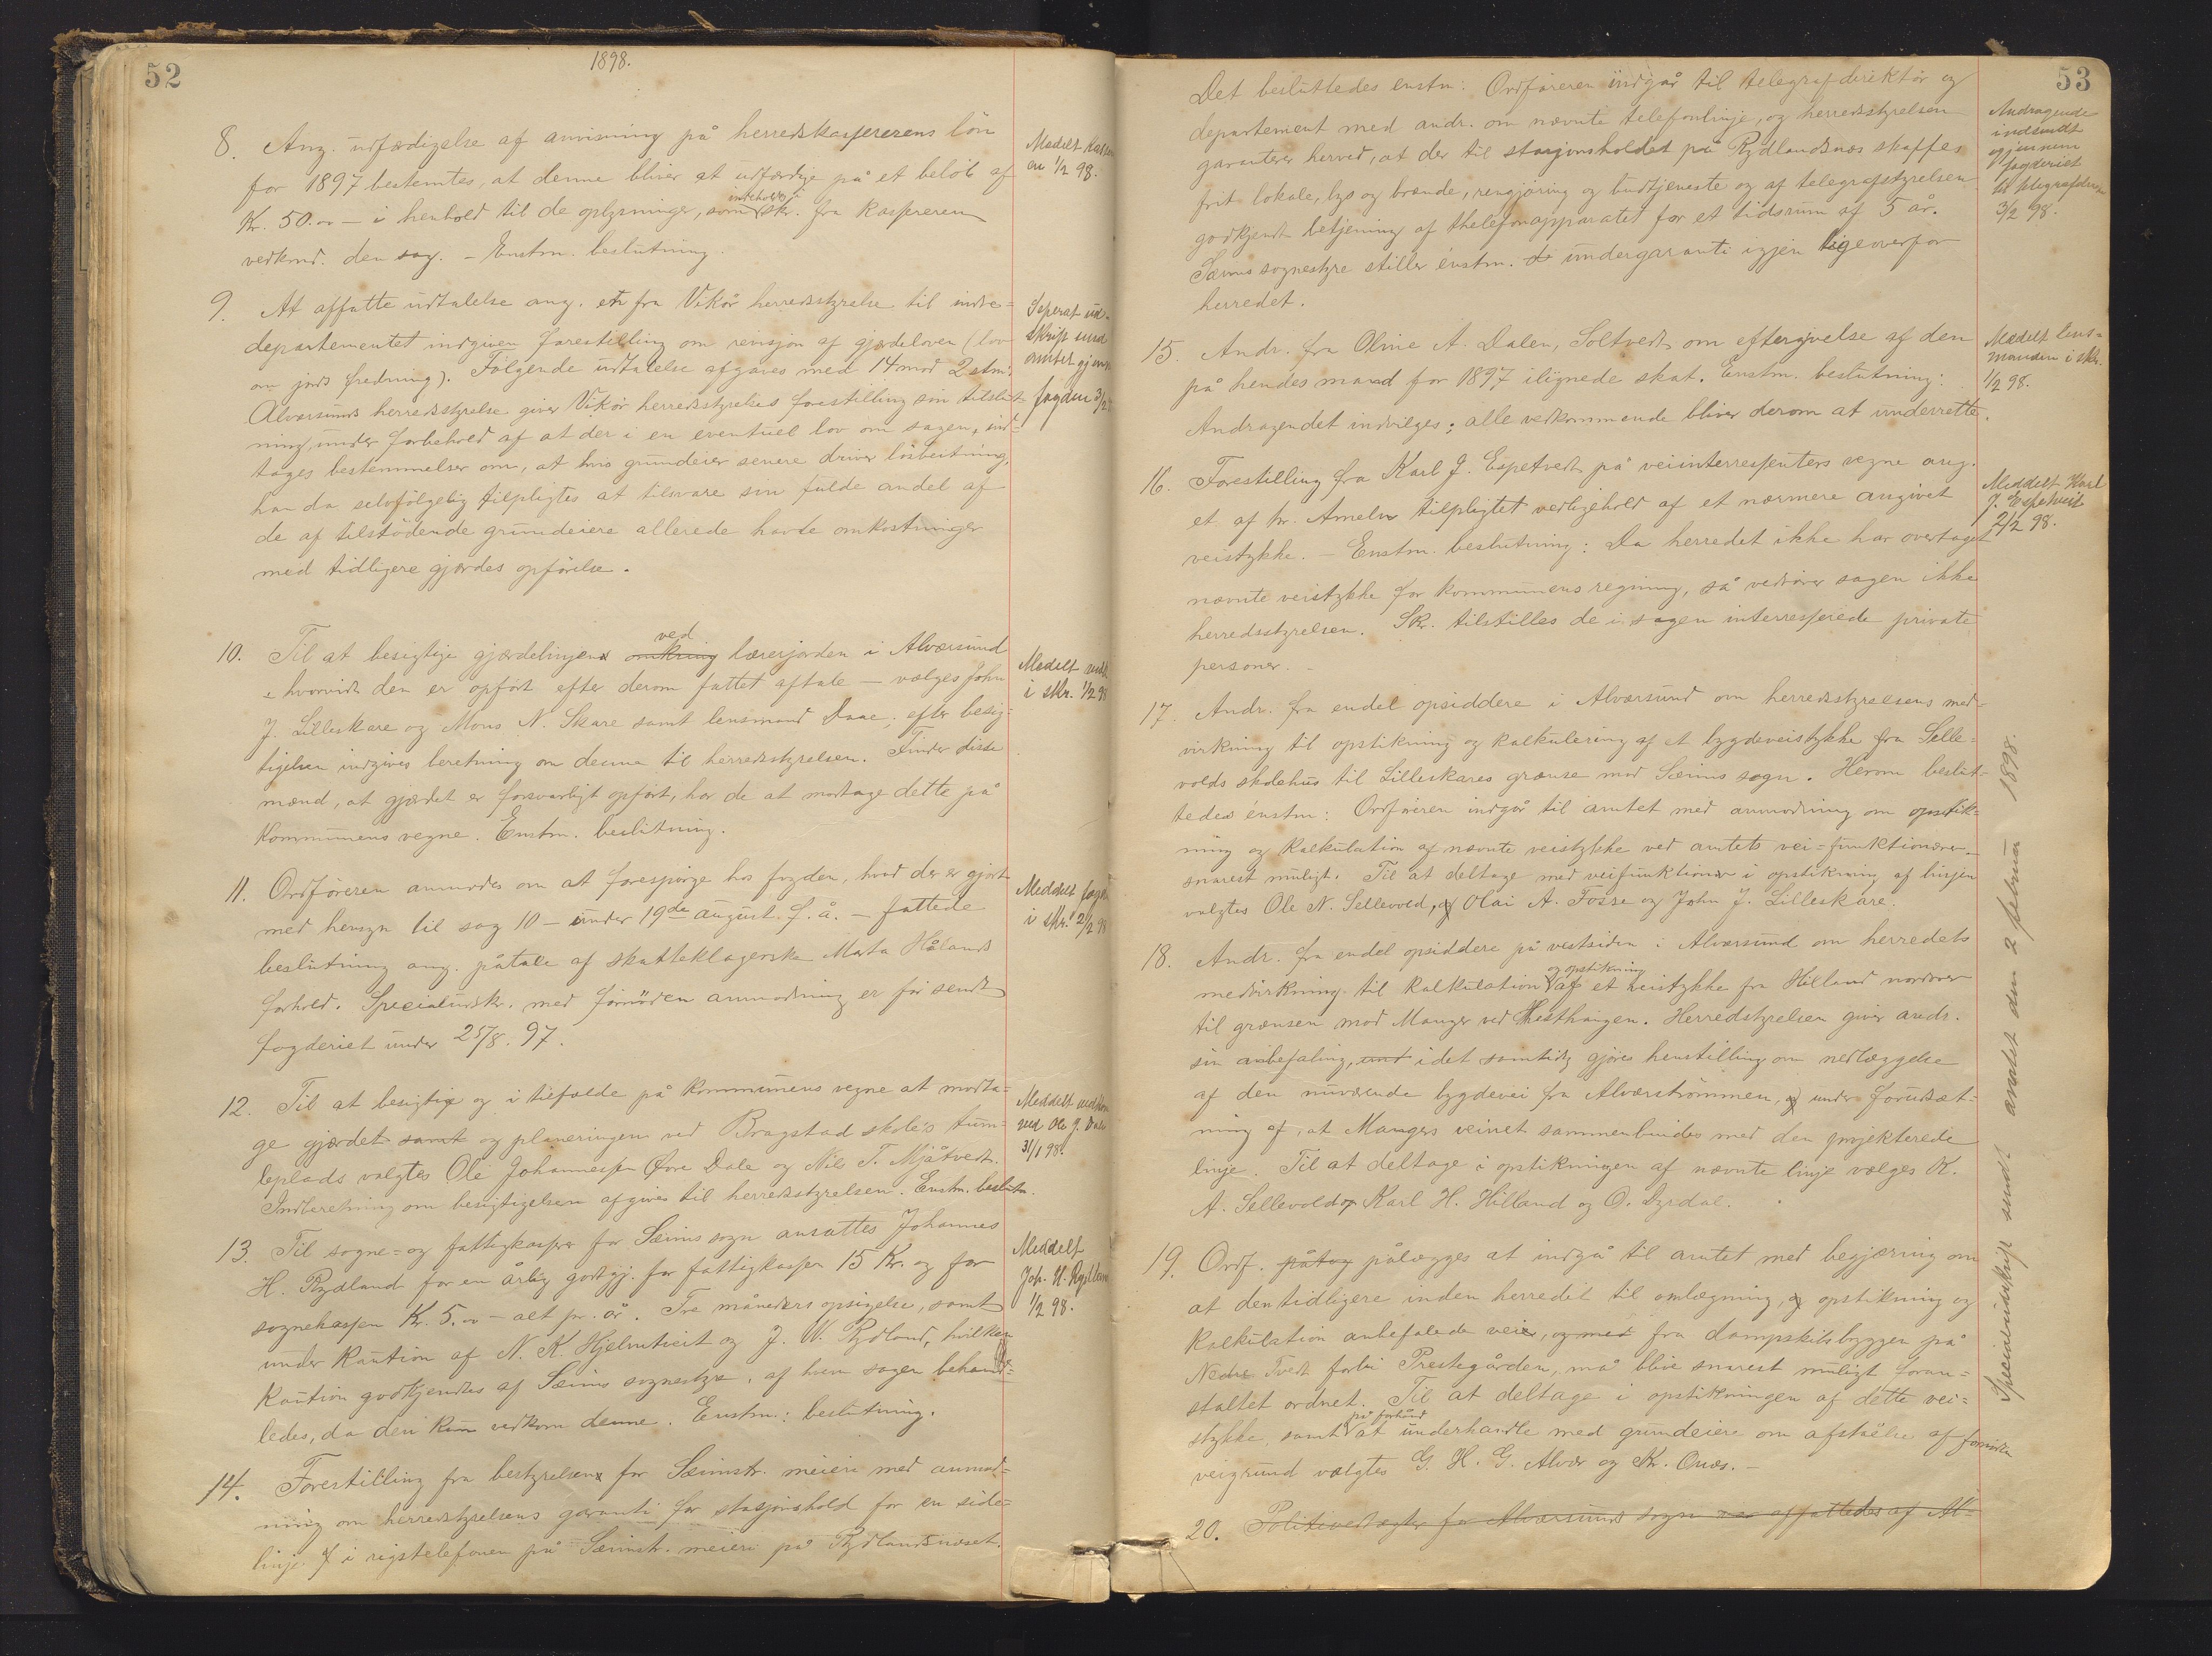 52
1898.
8. Ang. udfærdigelse af anvisning på herredskasfererens lön
for 1897 bestemtes, at denne bliver at udfærdige på et belöb af
Kr. 50.00 – i henhold til de oplysninger, som indeholdes i skr. fra kasfereren
vedkmd. den sag. – Enstm. beslutning.
Medelt Kasf
en 1/2 98.
9. At affatte udtalelse ang. en fra Vikör herredsstyrelse til indre=
departementet indgiven forestilling om revisjon af gjærdeloven (lov
om jords fredning). Fölgende udtalelse afgaves med 14 mod 2 stm.
Alversunds herredsstyrelse giver Vikör herredsstyrelses forestilling sin tilslut
ning, under forbehold af at der i en eventuel lov om sagen, ind=
tages bestemmelser om, at hvis grundeier senere driver lösbeitning,
han da selvfölgelig tilpligtes at tilsvare sin fulde andel af
de af tilstödende grundeiere allerede havte omkostninger
med tidligere gjærdes opförelse.
Seperat ud=
skrift send
amtet gjenn
fogden 3/2
10. Til at besigtige gjærdelinjen omkring ved lærerjorden i Alversund
– hvorvidt den er opfört efter derom fattet aftale – vælges John
J. Lilleskare og Mons N. Skare samt lensmand Daae; efter besig=
tigelsen indgives beretning om denne til herredsstyrelsen. Finder disse
mænd, at gjærdet er forsvarligt opfört, har de at modtage dette på
Kommunens vegne. Enstm. beslutning.
Medelt vedk
i skr. 1/2 98
11. Ordföreren anmodes om at forespörge hos fogden, hvad der er gjort
med hensyn til sag 10 – under 19de august f. å. – fattede
beslutning ang. påtale af skatteklagerske Marta Hålands
forhold. Specialudskr. med fornöden anmodning er för sendt
fogderiet under 25/8. 97.
Meddelt fogd
i skr. 2/2 98
12. Til at besigtige og i tilfælde på kommunens vegne at modta=
ge gjærdet samt og planeringen ved Bragstad skole's tum=
leplads valgtes Ole Johannesfen Övre Dale og Nils T. Mjåtvedt.
Indberetning om besigtigelsen afgives til herredsstyrelsen. Enstm. beslutn.
Meddelt vedkom
ved Ole J. Dale
31/1 98.
13. Til sogne= og fattigkasferer for Sæims sogn ansattes Johannes
H. Rydland for en årlig godtgj. for fattigkasfen 15 Kr. og for
sognekasfen Kr. 5.00 – alt pr. år. Tre måneders opsigelse, samt
under kaution af N. K. Hjelmtveit og J. W. Rydland, hvilken
kaution godkjendtes af Sæims sognestyre, af hvem sagen behand=
ledes, da den kun vedkom denne. Enstm.: beslutning.
Meddelt
Joh. H. Rydland
1/2 98.
14. Forestilling fra bestyrelsen for Sæimstr. meieri med anmod=
ning om herredsstyrelsens garanti for stasjonshold for en side=
linje f i rigstelefonen på Sæimstr. meieri på Rydlandsnæset.
53
Det besluttedes enstm: Ordföreren indgår til telegrafdirektör og
departement med andr. om nævnte telefonlinje, og herredsstyrelsen
garanterer herved, at der til stasjonsholdet på Rydlandsnæs skaffes
frit lokale, lys og brænde, rengjöring og budtjeneste og af telegrafstyrelsen
godkjendt betjening af thelefonapparatet for et tidsrum af 5 år.
Sæims sognestyre stiller enstm. undergaranti igjen ligeoverfor
herredet.
Andragende
indsendt
gjennem
fogderiet
til telegrafdirek
3/2 98.
15. Andr. fra Oline A. Dalen, Soltvedt om eftergivelse af den
på hendes mand for 1897 ilignede skat. Enstm. beslutning:
Andragendet indvilges; alle vedkommende bliver derom at underrette.
Medelt lens=
manden i skr.
1/2 98.
16. Forestilling fra Karl J. Espetvedt på veiinterresfenters vegne ang.
et af hr. Ameln tilpligtet vedligehold af et nærmere angivet
veistykke. – Enstm. beslutning: Da herredet ikke har overtaget
nævnte veistykke for kommunens regning, så vedrörer sagen ikke
herredsstyrelsen. Skr. tilstilles de i sagen interresferede private
personer. –
Meddelt Karl
J. Espetveit
2/2 98.
17. Andr. fra endel opsiddere i Alversund om herredsstyrelsens med=
virkning til opstikning og kalkulering af et bygdeveistykke fra Selle=
volds skolehus til Lilleskares grænse mod Sæims sogn. Herom beslut=
tedes enstm: Ordföreren indgår til amtet med anmodning om opstik=
ning og kalkulation af nævnte veistykke ved amtets vei=funktionærer
snarest muligt. Til at deltage med veifunktionær i opstikning af linjen
valgtes Ole N. Sellevold, og Olai A. Fosse og John J. Lilleskare.
18. Andr. fra endel opsiddere på vestsiden i Alversund om herredets
medvirkning til kalkulation og opstikning af et veistykke fra Hilland nordover
til grænsen mod Manger ved Hesthaugen. Herredstyrelsen giver andr.
sin anbefaling, idet samtidig gjöres henstilling om nedlæggelse
af den nuværende bygdevei fra Alverströmmen, og under forudsæt=
ning af, at Mangers veinet sammenbindes med den projekterede
linje. Til at deltage i opstikningen af nævnte linje vælges K.
A. Sellevold og Karl H. Hilland og O. Dyrdal.
19. Ordf. påtog pålægges at indgå til amtet med begjæring om
at den tidligere inden herredet til omlægning, og opstikning og
kalkulation anbefalede vei, og med fra dampskibsbryggen på
Nedre Tvedt forbi Prestegården, må blive snarest muligt foran=
staltet ordnet. Til at deltage i opstikningen af dette vei=
stykke, samt på forhånd at underhandle med grundeiere om afståelse af fornöden
veigrund valgtes G. H. G. Alver og Kr. Onæs. –
20. Politivedtægter for Alversunds sogn affattedes af Al=
Specialudskrift sendt amtet den 2 februar 1898.